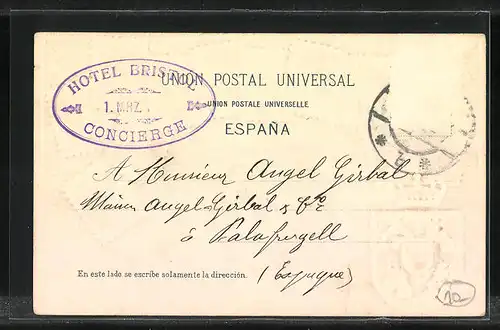 HOTEL BRISTOL
1. MRZ.
CONCIERGE
UNION POSTAL UNIVERSAL
UNION POSTALE UNIVERSELLE
ESPAÑA
A Monsieur Angel Girbal
Maison Angel Girbal & Cie
à Palafrugell
(Espagne)
En este lado se escribe solamente la dirección.
10